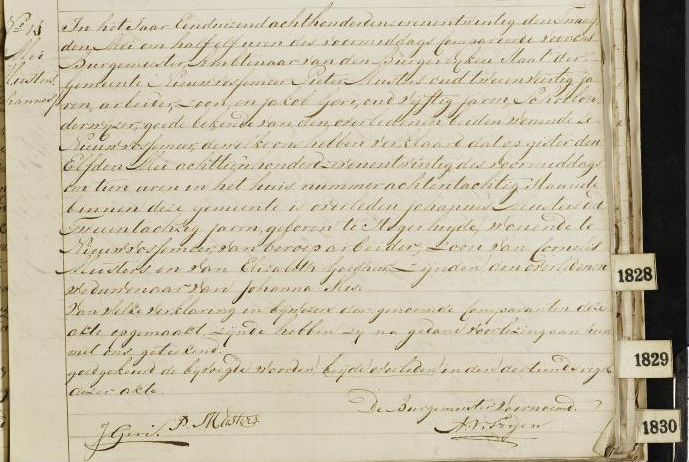 In het Jaar Eenduizend achthonderd en zevenentwintig den Twaalf
den Mei om half elf uren des voormiddags Compareerde voor ons
Burgemeester Ambtenaar van den Burgerlyken Staat der
gemeente Nieuwvosmeer, Pieter Musters oud tweeenveertig ja
ren, arbeider, Zoon, en Jakob Geris, oud vyftig jaren, Schoolon
derwyzer, goede bekende van den overledenen beiden wonende te
Nieuwvosmeer, dewelke ons hebben verklaard dat op gister den
Elfden Mei achttien honderd zevenentwintig des voormiddags
om tien uren in het huis nummer achtentachtig staande
binnen deze gemeente is overleden Johannes Meusters oud
Tweentachtig jaren, geboren te wonende te
Nieuwvosmeer, van beroep arbeider, Zoon van Cornelis
Meusters en van Elizabeth zynde den overledenen
weduwenaar van Johanna Mes.
Van welke verklaring in byweezen der genoemde Comparanten deze
akte opgemaakt zynde hebben zy na gedane voorlezing aan hun
met ons geteekend.
goedgekeurd de bygevoegde woorden in den dertiende regel
dezer akte.
De Burgemeester Voornoemd.
J Geris. P. Musters
No
Mei
Meusters
Johannes
1828
1829
1830